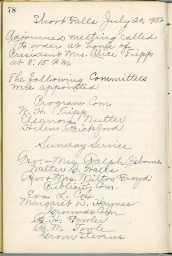 78
Short Falls July 20, 1952
Adjourned meeting called
to order at home of
President Mrs. Alice Tripp
at 8:15 P.M.
The following Committees
were appointed
Program Com
W. H. Tripp
Eleanor Nutter
Helen Bickford
Sunday Service
Rev + Mrs. Ralph Osborne
Walter B. Wells
Rev + Mrs. Milton Floyd
Publicity Com.
Eva L.
Margaret D. Haynes
Grounds Com
Fowler
M. Fowle